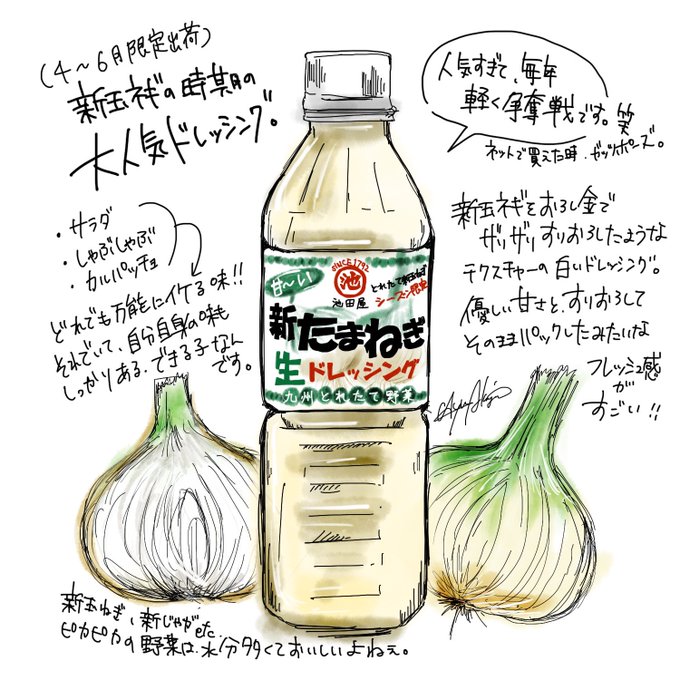 (4〜6月限定出荷)
新玉ネギの時期の
大人気ドレッシング。
人気すぎて、毎年
軽く争奪戦です。笑
ネットで買えた時、ガッツポーズ。
・サラダ
・しゃぶしゃぶ
・カルパッチョ
どれでも万能にイケる味!!
それでいて、自分自身の味も
しっかりある、できる子なん
です。
新玉ネギをおろし金で
ザリザリすりおろしたような
テクスチャーの白いドレッシング。
優しい甘さと、すりおろして
そのままパックしたみたいな
フレッシュ感
が
すごい!!
SINCE 1792
池
池田屋
甘〜い
とれたて新玉ねぎ
シーズン限定
新たまねぎ
生ドレッシング
九州とれたて野菜
新玉ねぎ、新じゃがetc.
ピカピカの野菜は、水分多くておいしいよねぇ。